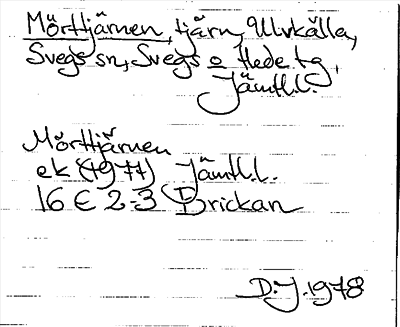 Mörttjärnen, tjärn, Ulvkälla,
Svegs sn, Svegs o Hede tg,
Jämtl.l.
Mörttjärnen
ek (1977) Jämtl.l.
16 E 2-3 Brickan
D.J. 1978